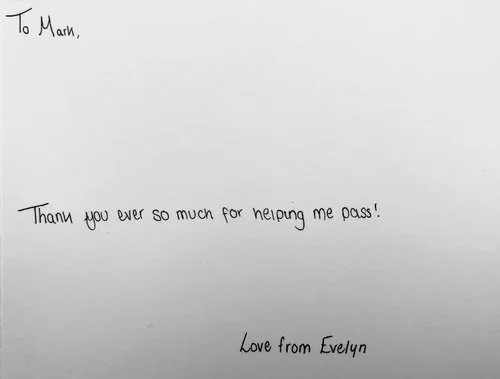 To Mark,
Thank you ever so much for helping me pass!
Love from Evelyn